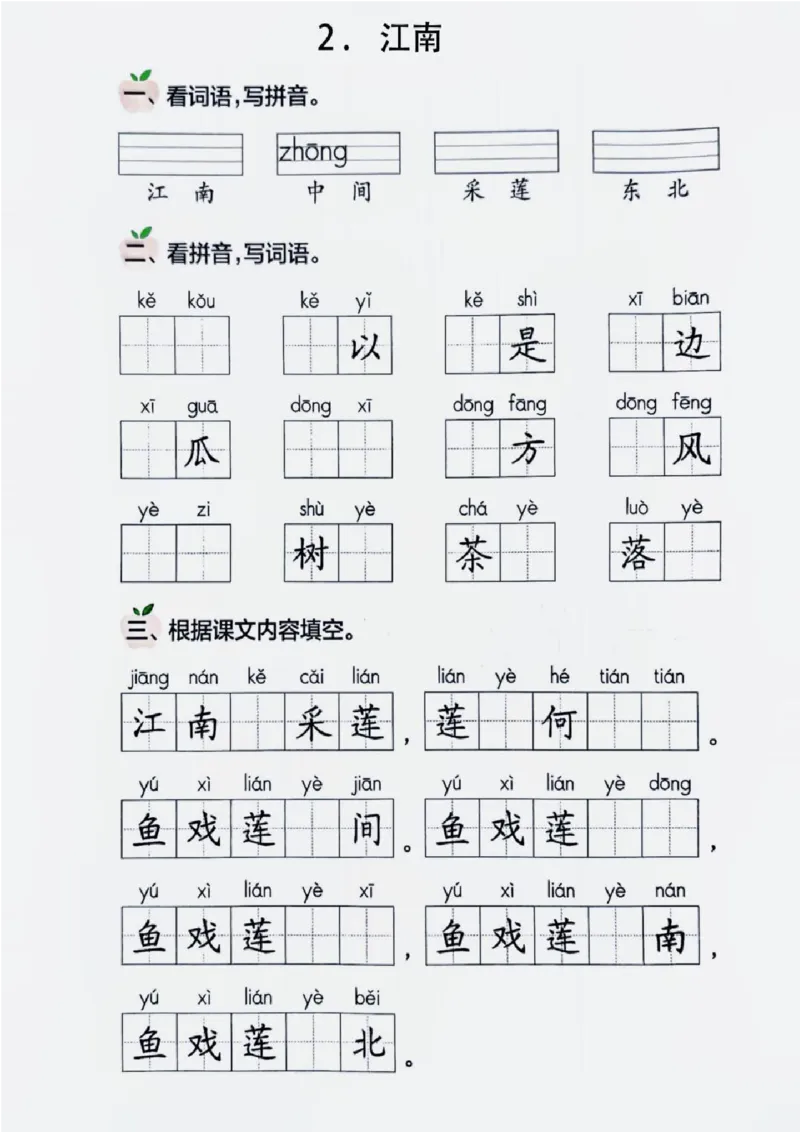 2. 江南
一、看词语，写拼音。
zhōng
江 南 中 间 采 莲 东 北
二、看拼音，写词语。
kě kǒu kě yǐ kě shì xī biān
以 是 边
xī guā dōng xī dōng fāng dōng fēng
瓜 方 风
yè zi shù yè chá yè luò yè
树 茶 落
三、根据课文内容填空。
jiāng nán kě cǎi lián lián yè hé tián tián
江 南 采 莲 ， 莲 何 。
yú xì lián yè jiān yú xì lián yè dōng
鱼 戏 莲 间 。 鱼 戏 莲 ，
yú xì lián yè xī yú xì lián yè nán
鱼 戏 莲 ， 鱼 戏 莲 南 ，
yú xì lián yè běi
鱼 戏 莲 北 。